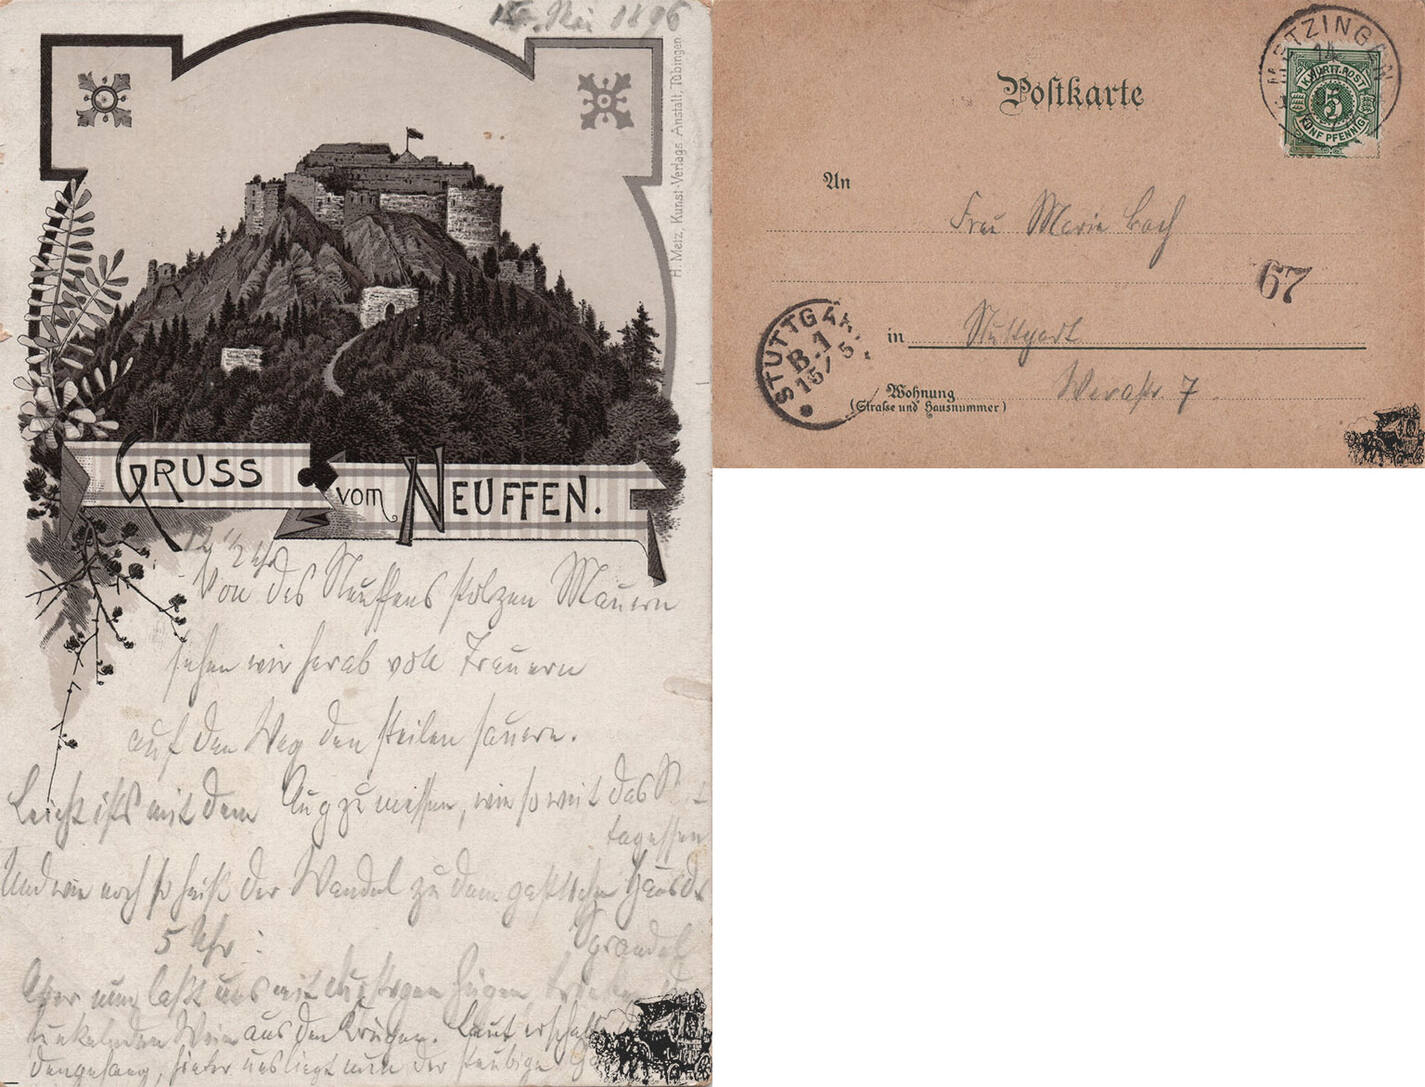 15. Mai 1896
H. Metz, Kunst-Verlags Anstalt, Tübingen
GRUSS
vom NEUFFEN.
12 1/2 Uhr
Von des Neuffens stolzen Mauern
sehen wir herab voll Trauern
auf den Weg den steilen sauern.
Leicht ists mit dem Aug zu messen, wie so weit das
tagessen
Und wie noch so heiß der Wandel zu dem gastlichen Haus
5 Uhr:
Aber nun laßt uns mit durstigen Zügen,
funkelnden Wein aus den Krügen. Laut
hinter uns liegt nun der staubige
Postkarte
METZINGEN
14
K. WÜRTT. POST
5
FÜNF PFENNIG
An
Frau Marie Bach
67
in Stuttgart
Wohnung
(Strasse und Hausnummer)
Werastr. 7
STUTTGART
B.1
15/5